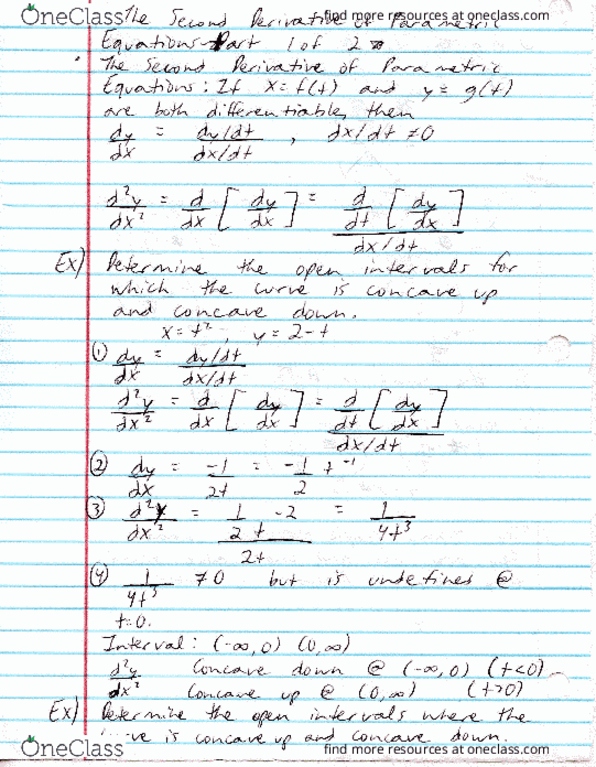 OneClass
find more resources at oneclass.com
The Second Derivative of Parametric
Equations Part 1 of 2
The Second Derivative of Parametric
Equations: If x = f(t) and y = g(t)
are both differentiable, then
dy/dx = (dy/dt)/(dx/dt), dx/dt ≠ 0
d²y/dx² = d/dx [dy/dx] = (d/dt [dy/dx])/(dx/dt)
Ex) Determine the open intervals for
which the curve is concave up
and concave down.
x = t², y = 2-t
① dy/dx = (dy/dt)/(dx/dt)
d²y/dx² = d/dx [dy/dx] = (d/dt [dy/dx])/(dx/dt)
② dy/dx = -1/2t = -1/2 t⁻¹
③ d²y/dx² = (1/2 t⁻²)/2t = 1/4t³
④ 1/4t³ ≠ 0 but is undefined @
t=0.
Interval: (-∞,0) (0,∞)
d²y/dx² Concave down @ (-∞,0) (t<0)
Concave up @ (0,∞) (t>0)
Ex) Determine the open intervals where the
is concave up and concave down.
OneClass
find more resources at oneclass.com